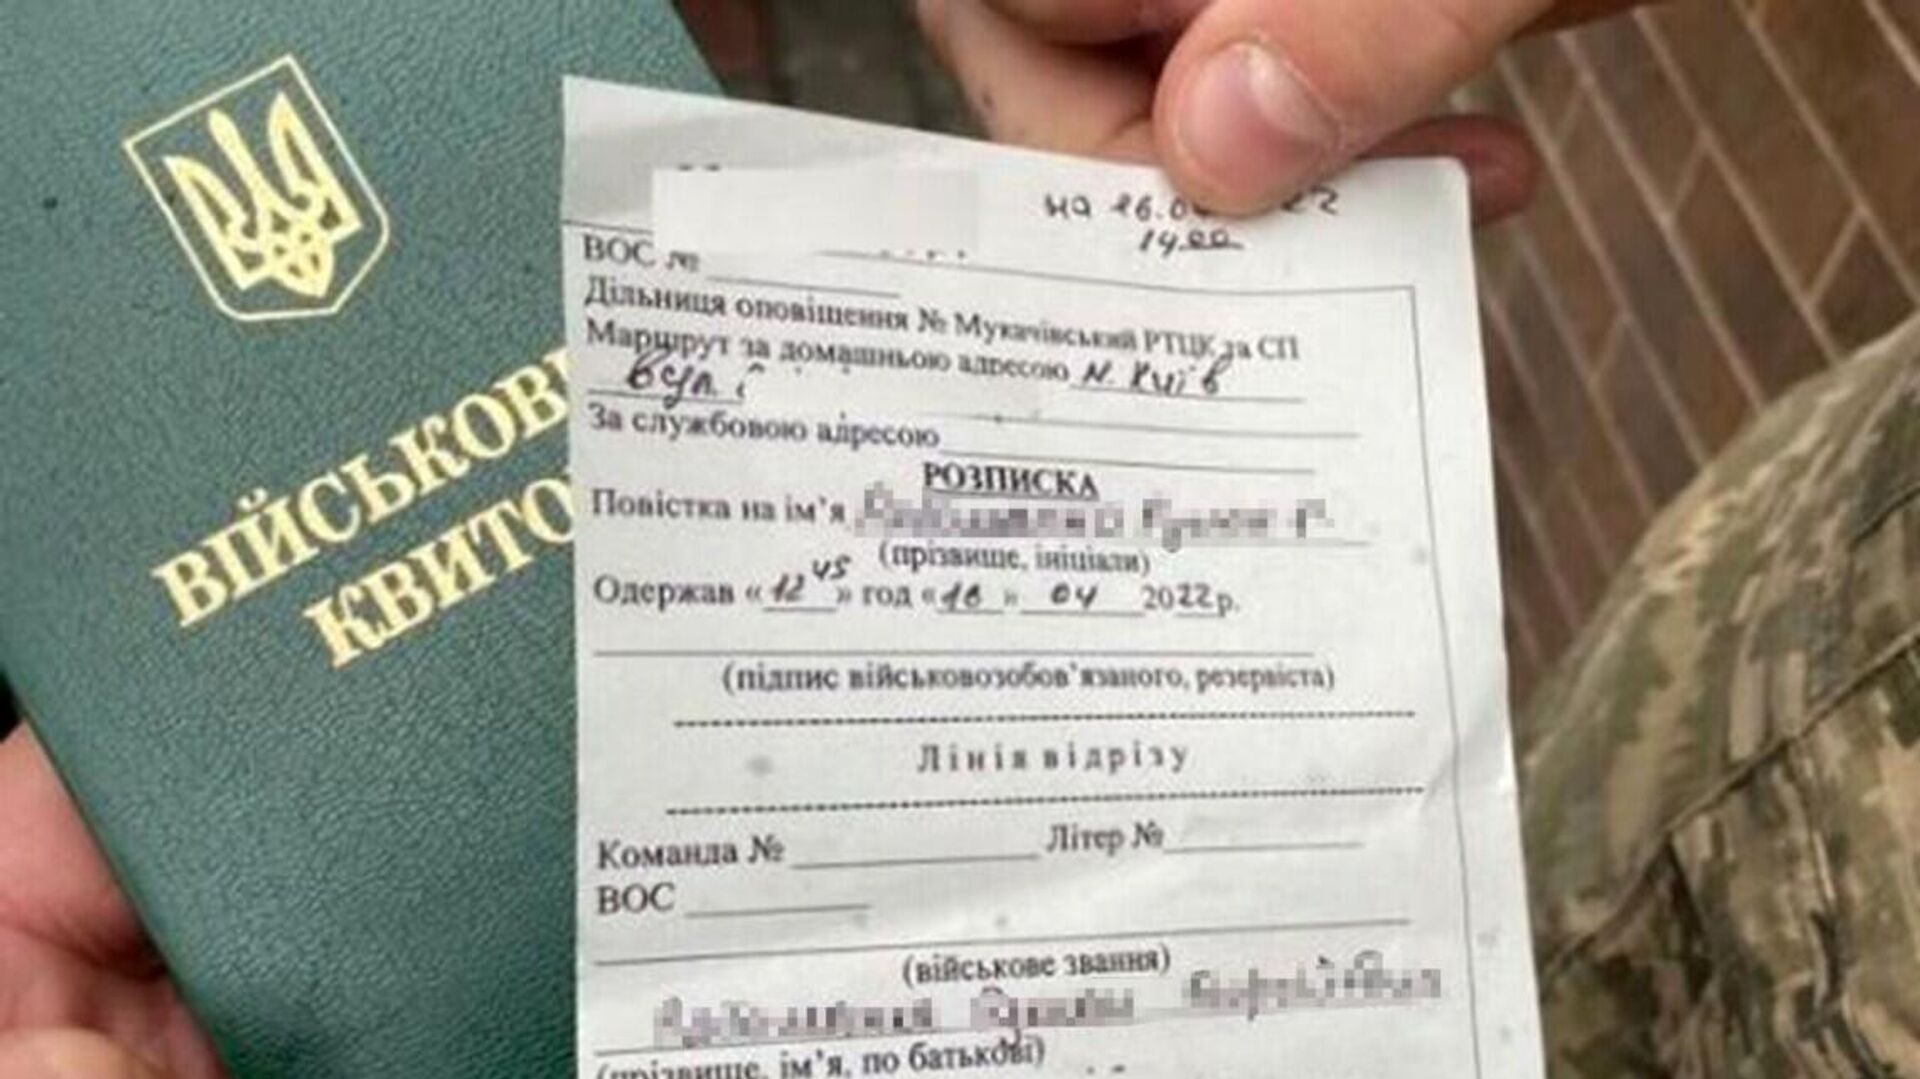 ВІЙСЬКОВ
КВИТО
на 26.0 22
14 00
ВОС №
Дільниця оповіщення № Мукачівський РТЦК та СП
Маршрут за домашньою адресою м. Київ
вул
За службовою адресою
РОЗПИСКА
Повістка на ім’я
(прізвище, ініціали)
Одержав «12 45» год «18» 04 2022 р.
(підпис військовозобов’язаного, резервіста)
Лінія відрізу
Команда № Літер №
ВОС
(військове звання)
(прізвище, ім’я, по батькові)